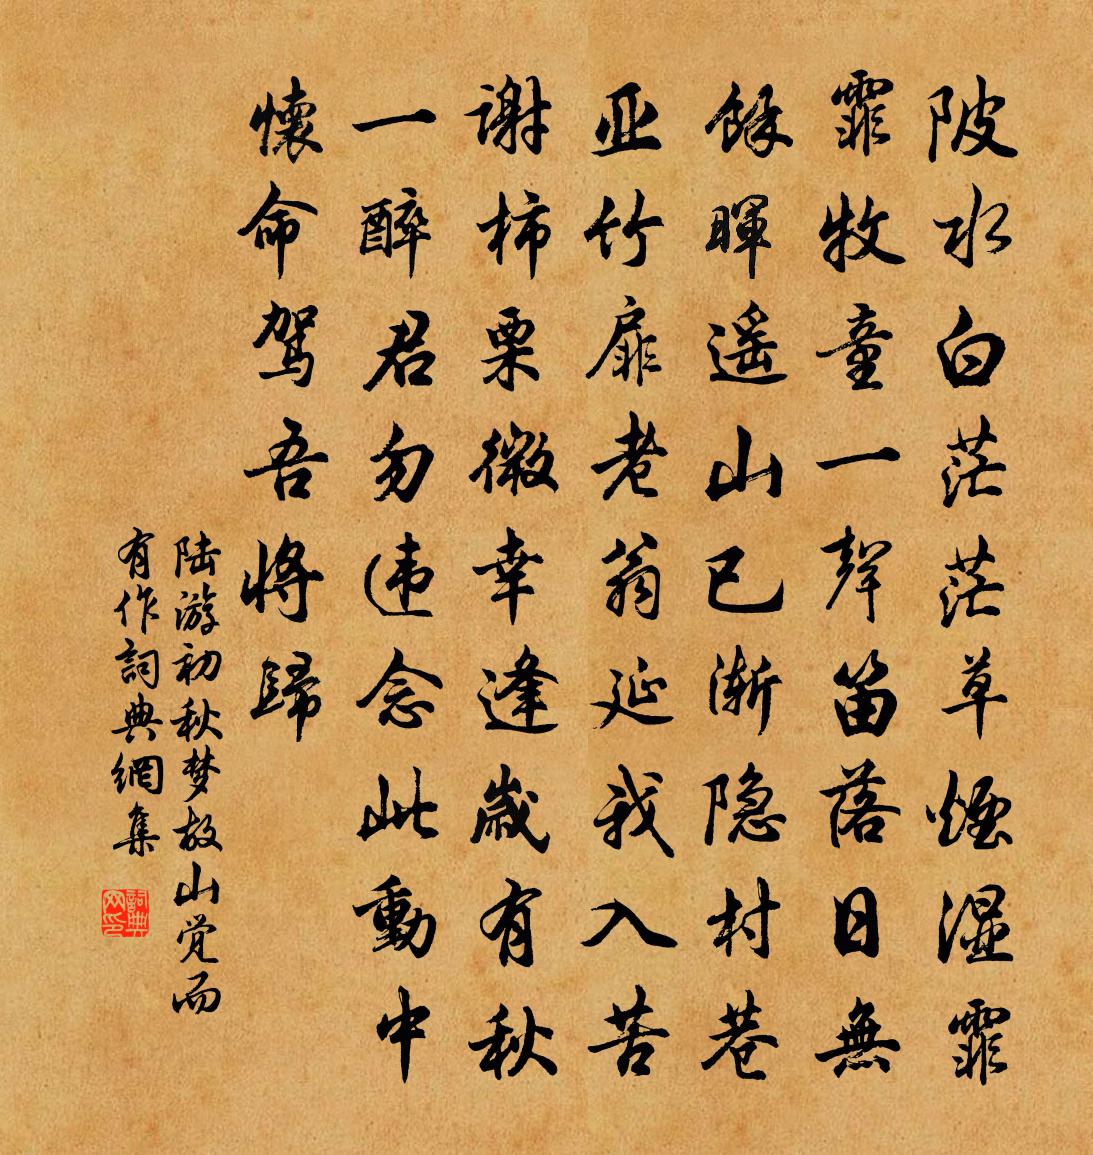 陂水白茫茫草煙湿霏
霏牧童一聲笛落日無
餘暉遥山已渐隐村巷
亚竹扉老翁延我入苦
謝柿栗微幸逢歲有秋
一醉君勿违念此動中
懷命驾吾将歸
陆游初秋梦故山觉而
有作詞典網集
詞典网印